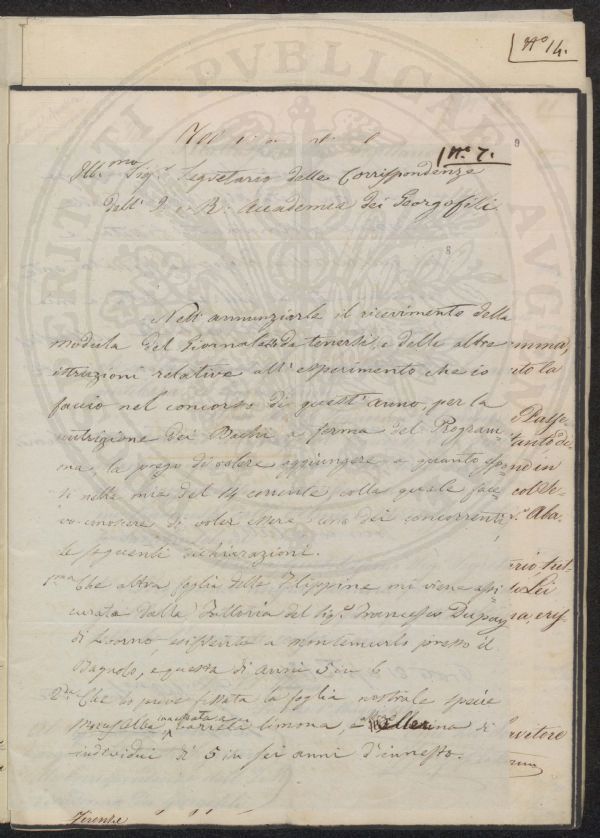 N.° 14.
N.° 7.
Ill.mo Sig.r Segretario delle Corrispondenze
dell' I. e R. Accademia dei Georgofili.
Nell' annunziarle il ricevimento della
modula del Giornale da tenersi, e delle altre
istruzioni relative all' esperimento che io
faccio nel concorso di quest' anno, per la
nutrizione dei Bachi a forma del Program=
ma, la prego di volere aggiungere a quanto espo=
si nella mia del 14 corrente, colla quale face=
vo conoscere di voler essere uno dei concorrenti,
le seguenti dichiarazioni.
p.ma Che altra foglia delle Filippine mi viene assi
curata dalla Fattoria del Sig.r Francesco Dupouy
di Livorno, esistente a Montemurlo presso il
Bagnolo, e questa di anni 5 in 6
2.da Che io pure fissata la foglia nostrale specie
innestata a
varietà limona, e di
individui di 5 in sei anni d'innesto.
Firenze